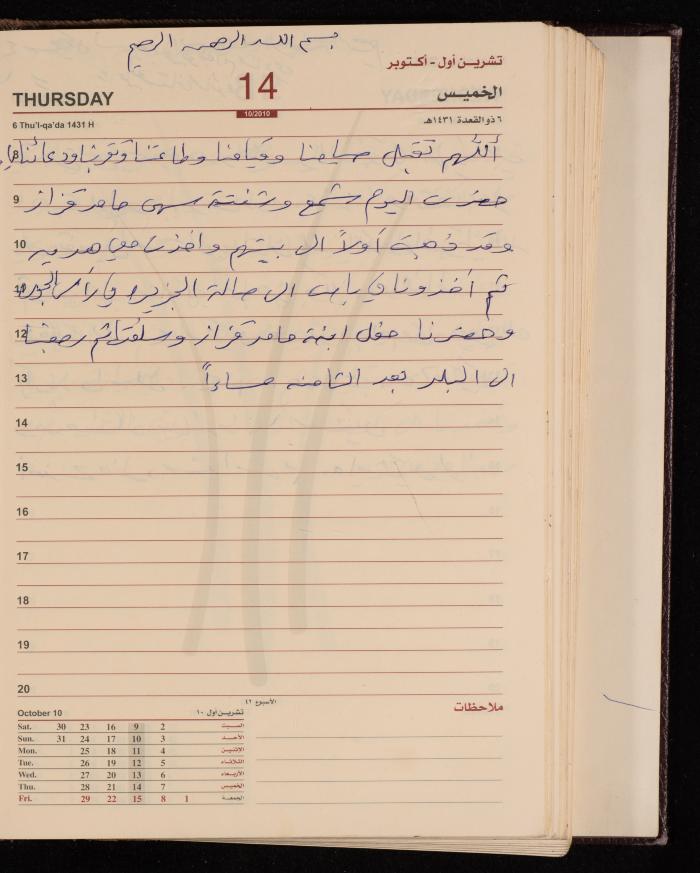 بسم الله الرحمن الرحيم
تشرين أول - أكتوبر
THURSDAY 14 الخميس
10/2010
6 Thu'l-qa'da 1431 H ٦ ذو القعدة ١٤٣١هـ
اللهم تقبل صيامنا وقيامنا وطاعتنا وتقربنا ودعائنا
9 حضرت اليوم شمع وشنتة سهى حامد قزاز
10 وقد ذهبت أولاً الى بيتهم واخذت معي هديه
ثم أخذونا في باص الى صالة الجزيره في رأس
12 وحضرنا حفل ابنة حامد قزاز وسلفتها ثم رجعنا
13 الى البلد بعد الثامنه مساءاً
14
15
16
17
18
19
20
الأسبوع ٤٢
ملاحظات
October 10 تشرين أول ١٠
Sat. 30 23 16 9 2 السبت
Sun. 31 24 17 10 3 الأحد
Mon. 25 18 11 4 الإثنين
Tue. 26 19 12 5 الثلاثاء
Wed. 27 20 13 6 الأربعاء
Thu. 28 21 14 7 الخميس
Fri. 29 22 15 8 1 الجمعة